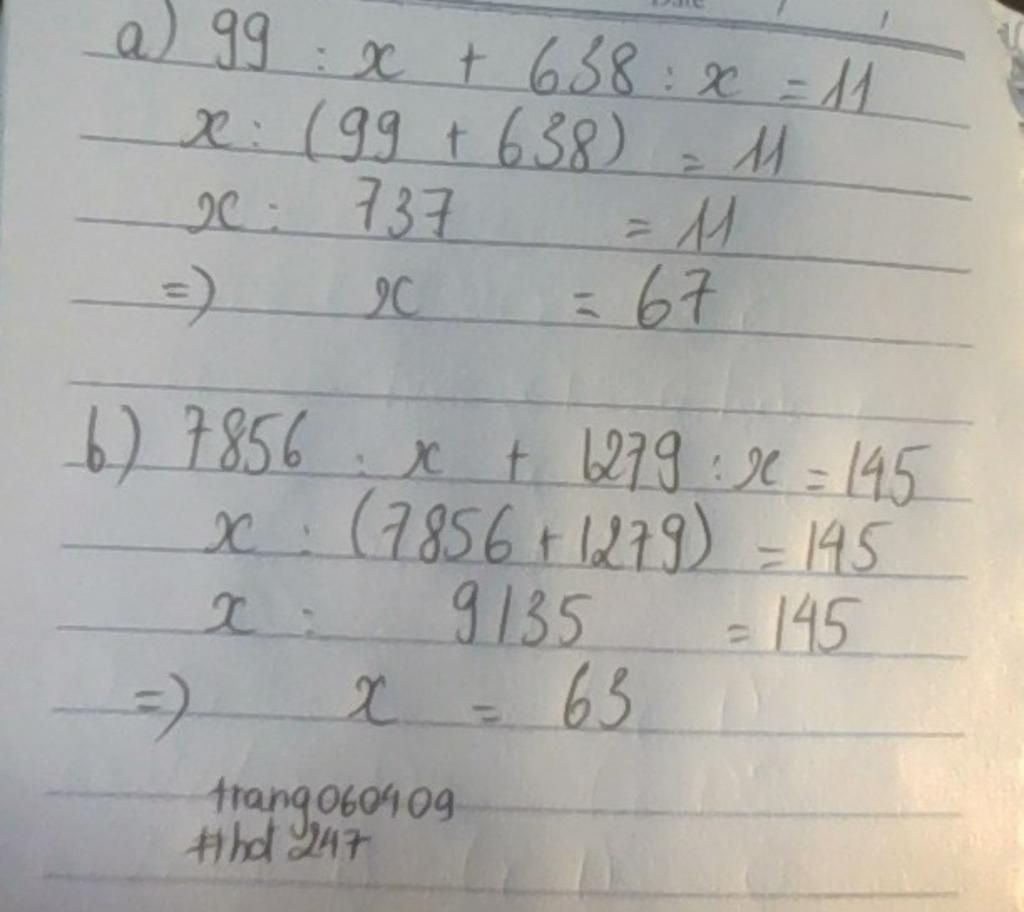 a) 99 : x + 638 : x = 11
x : (99 + 638) = 11
x : 737 = 11
=) x = 67
b) 7856 : x + 1279 : x = 145
x : (7856 + 1279) = 145
x : 9135 = 145
=) x = 63
trang060409
#hd 247